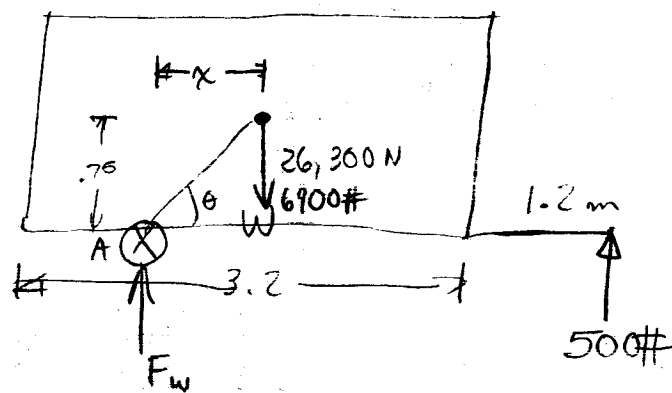 x
.75
26,300 N
6900#
θ
W
1.2 m
A
3.2
500#
Fw